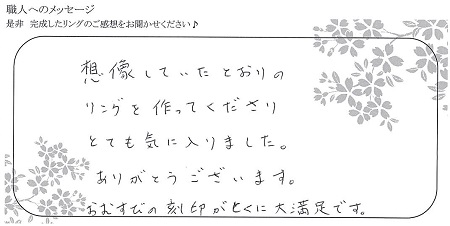 職人へのメッセージ
是非 完成したリングのご感想をお聞かせください♪
想像していたとおりの
リングを作ってくださり
とても気に入りました。
ありがとうございます。
おむすびの刻印がとくに大満足です。